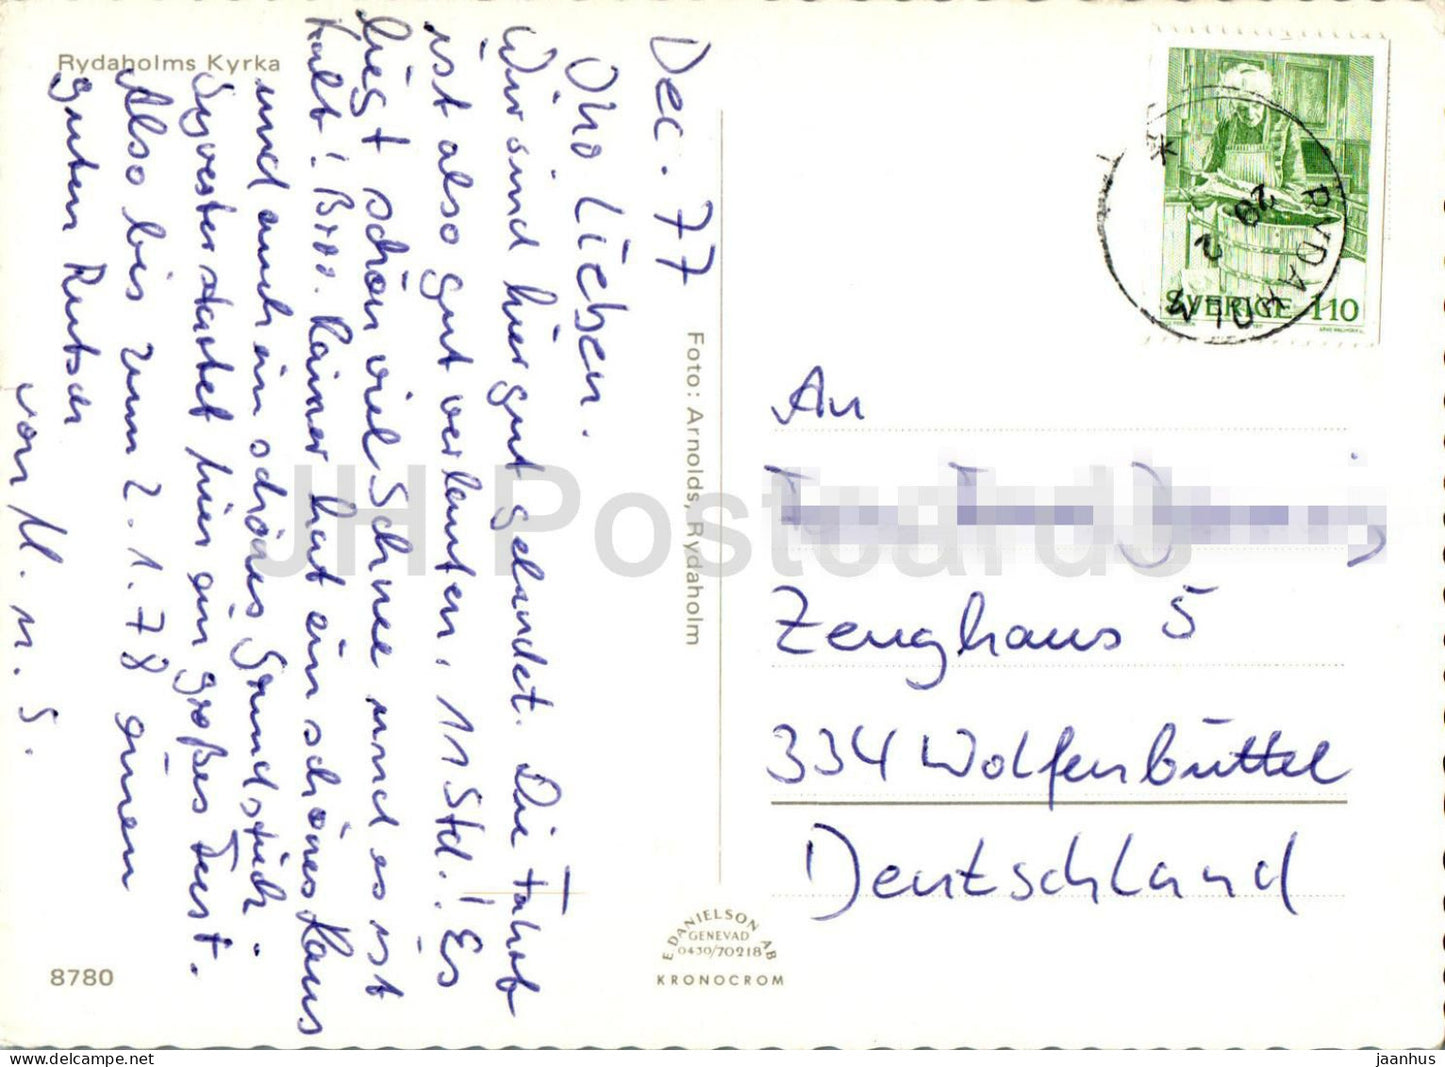 Rydaholms Kyrka
Dec. 77
Oho Lieben.
Wir sind hier gut gelandet. Die Fahrt
ist also gut verlaufen, 11 Std.! Es
liegt schon viel Schnee und es ist
kalt! Brr. Rainer hat ein schönes Haus
und auch ein schönes Grundstück.
Sylvester startet hier ein großes Fest.
Also bis zum 2.1.78 einen
guten Rutsch
von U. u. S.
8780
Foto: Arnolds, Rydaholm
E DANIELSON AB
GENEVAD
0430/70218
KRONOCROM
RYDAHOLM
29
SVERIGE 110
An
Zeughaus 5
334 Wolfenbüttel
Deutschland
JH Postcards
jaanhus
www.delcampe.net